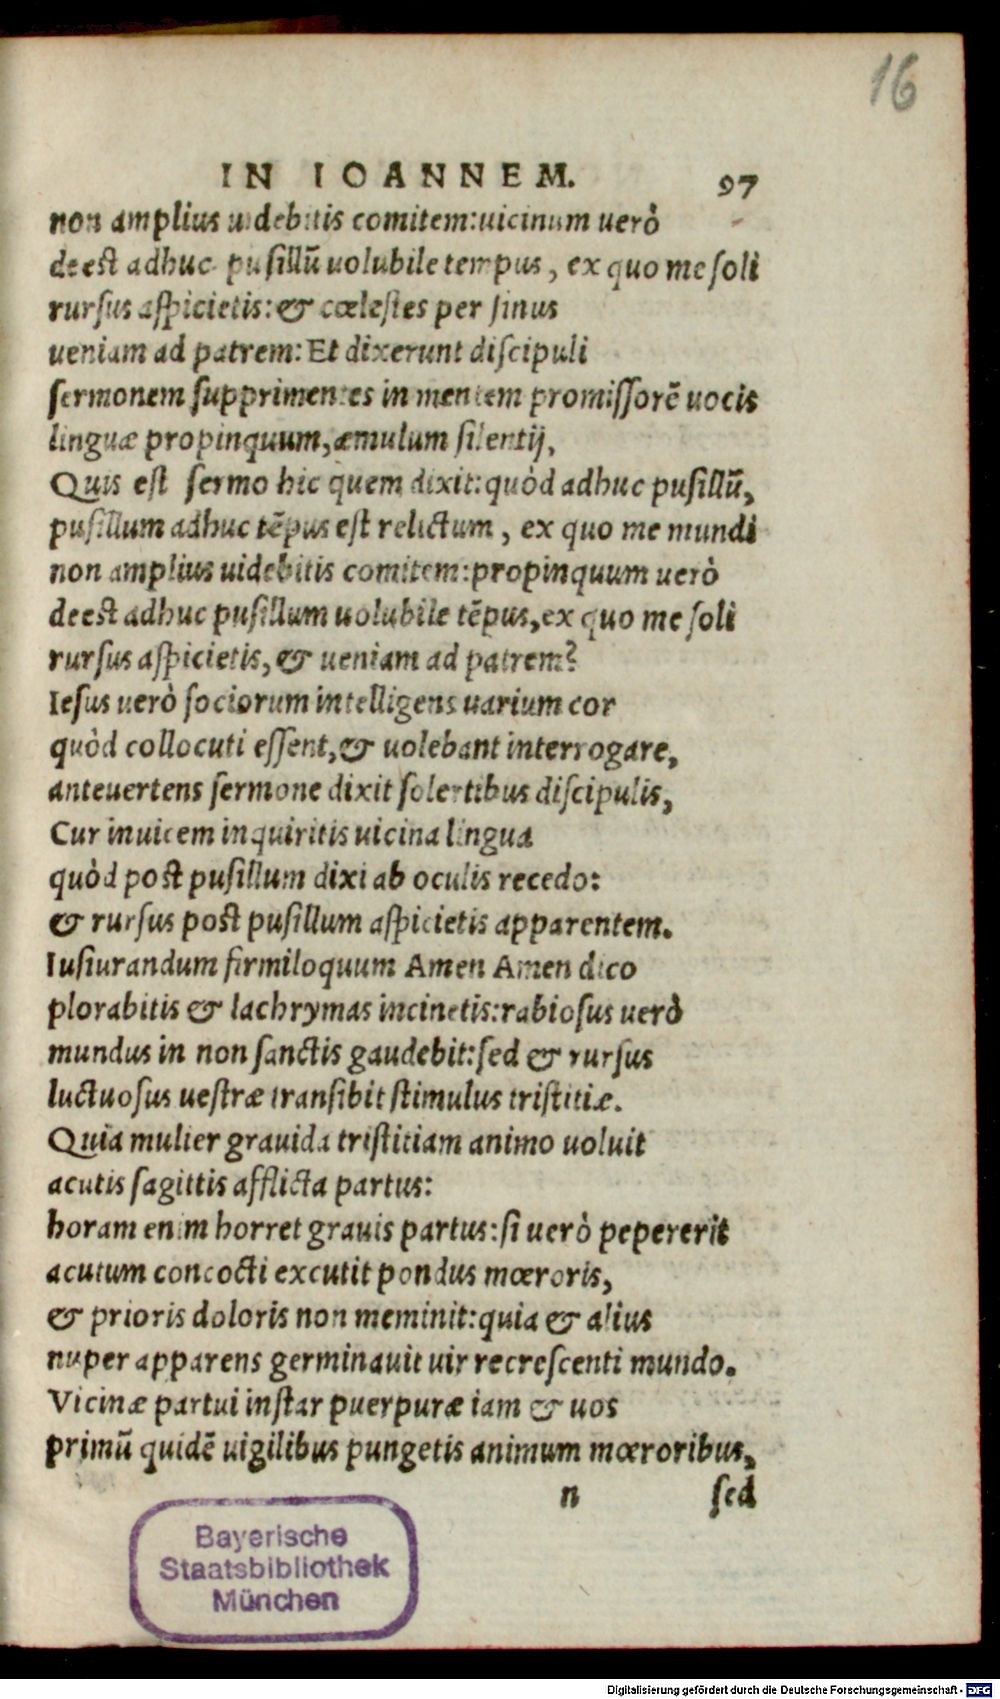 16
IN IOANNEM. 97
non amplius uidebitis comitem:uicinum uerò
deest adhuc pusillũ uolubile tempus, ex quo me soli
rursus aspicietis:& cœlestes per sinus
ueniam ad patrem: Et dixerunt discipuli
sermonem supprimentes in mentem promissorẽ uocis
linguæ propinquum,æmulum silentij,
Quis est sermo hic quem dixit:quòd adhuc pusillũ,
pusillum adhuc tẽpus est relictum, ex quo me mundi
non amplius uidebitis comitem:propinquum uerò
deest adhuc pusillum uolubile tẽpus,ex quo me soli
rursus aspicietis,& ueniam ad patrem?
Iesus uerò sociorum intelligens uarium cor
quòd collocuti essent,& uolebant interrogare,
anteuertens sermone dixit solertibus discipulis,
Cur inuicem inquiritis uicina lingua
quòd post pusillum dixi ab oculis recedo:
& rursus post pusillum aspicietis apparentem.
Iusiurandum firmiloquum Amen Amen dico
plorabitis & lachrymas incinetis:rabiosus uerò
mundus in non sanctis gaudebit:sed & rursus
luctuosus uestræ transibit stimulus tristitiæ.
Quia mulier grauida tristitiam animo uoluit
acutis sagittis afflicta partus:
horam enim horret grauis partus:si uerò pepererit
acutum concocti excutit pondus mœroris,
& prioris doloris non meminit:quia & alius
nuper apparens germinauit uir recrescenti mundo.
Vicinæ partui instar puerpuræ iam & uos
primũ quidẽ uigilibus pungetis animum mœroribus,
n sed
Bayerische
Staatsbibliothek
München
Digitalisierung gefördert durch die Deutsche Forschungsgemeinschaft - DFG